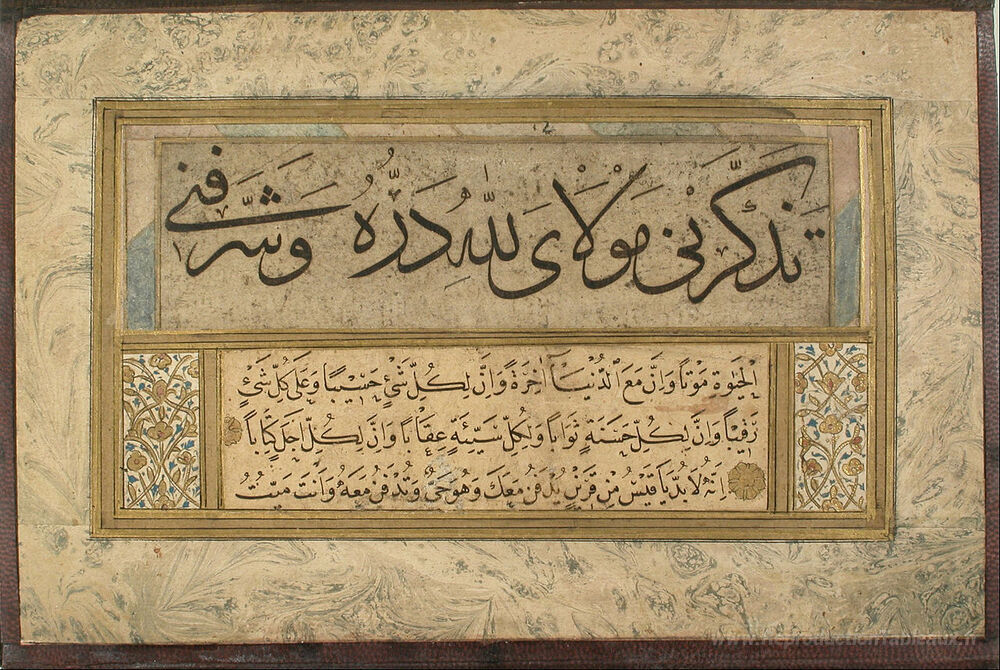 تَذَكَّرَنِي مَوْلَايَ لِلّٰهِ دَرُّهُ وَشَرَّفَنِي
الْحَيٰوةِ مَوْتًا وَاِنَّ مَعَ الدُّنْيَا اٰخِرَةً وَاِنَّ لِكُلِّ شَيْءٍ حَسِيبًا وَعَلَى كُلِّ شَيْءٍ
رَقِيبًا وَاِنَّ لِكُلِّ حَسَنَةٍ ثَوَابًا وَلِكُلِّ سَيِّئَةٍ عِقَابًا وَاِنَّ لِكُلِّ اَجَلٍ كِتَابًا
اِنَّهُ لَابُدَّ يَا قَيْسُ مِنْ قَرِينٍ يُدْفَنُ مَعَكَ وَهُوَ حَيٌّ وَتُدْفَنُ مَعَهُ وَاَنْتَ مَيِّتٌ